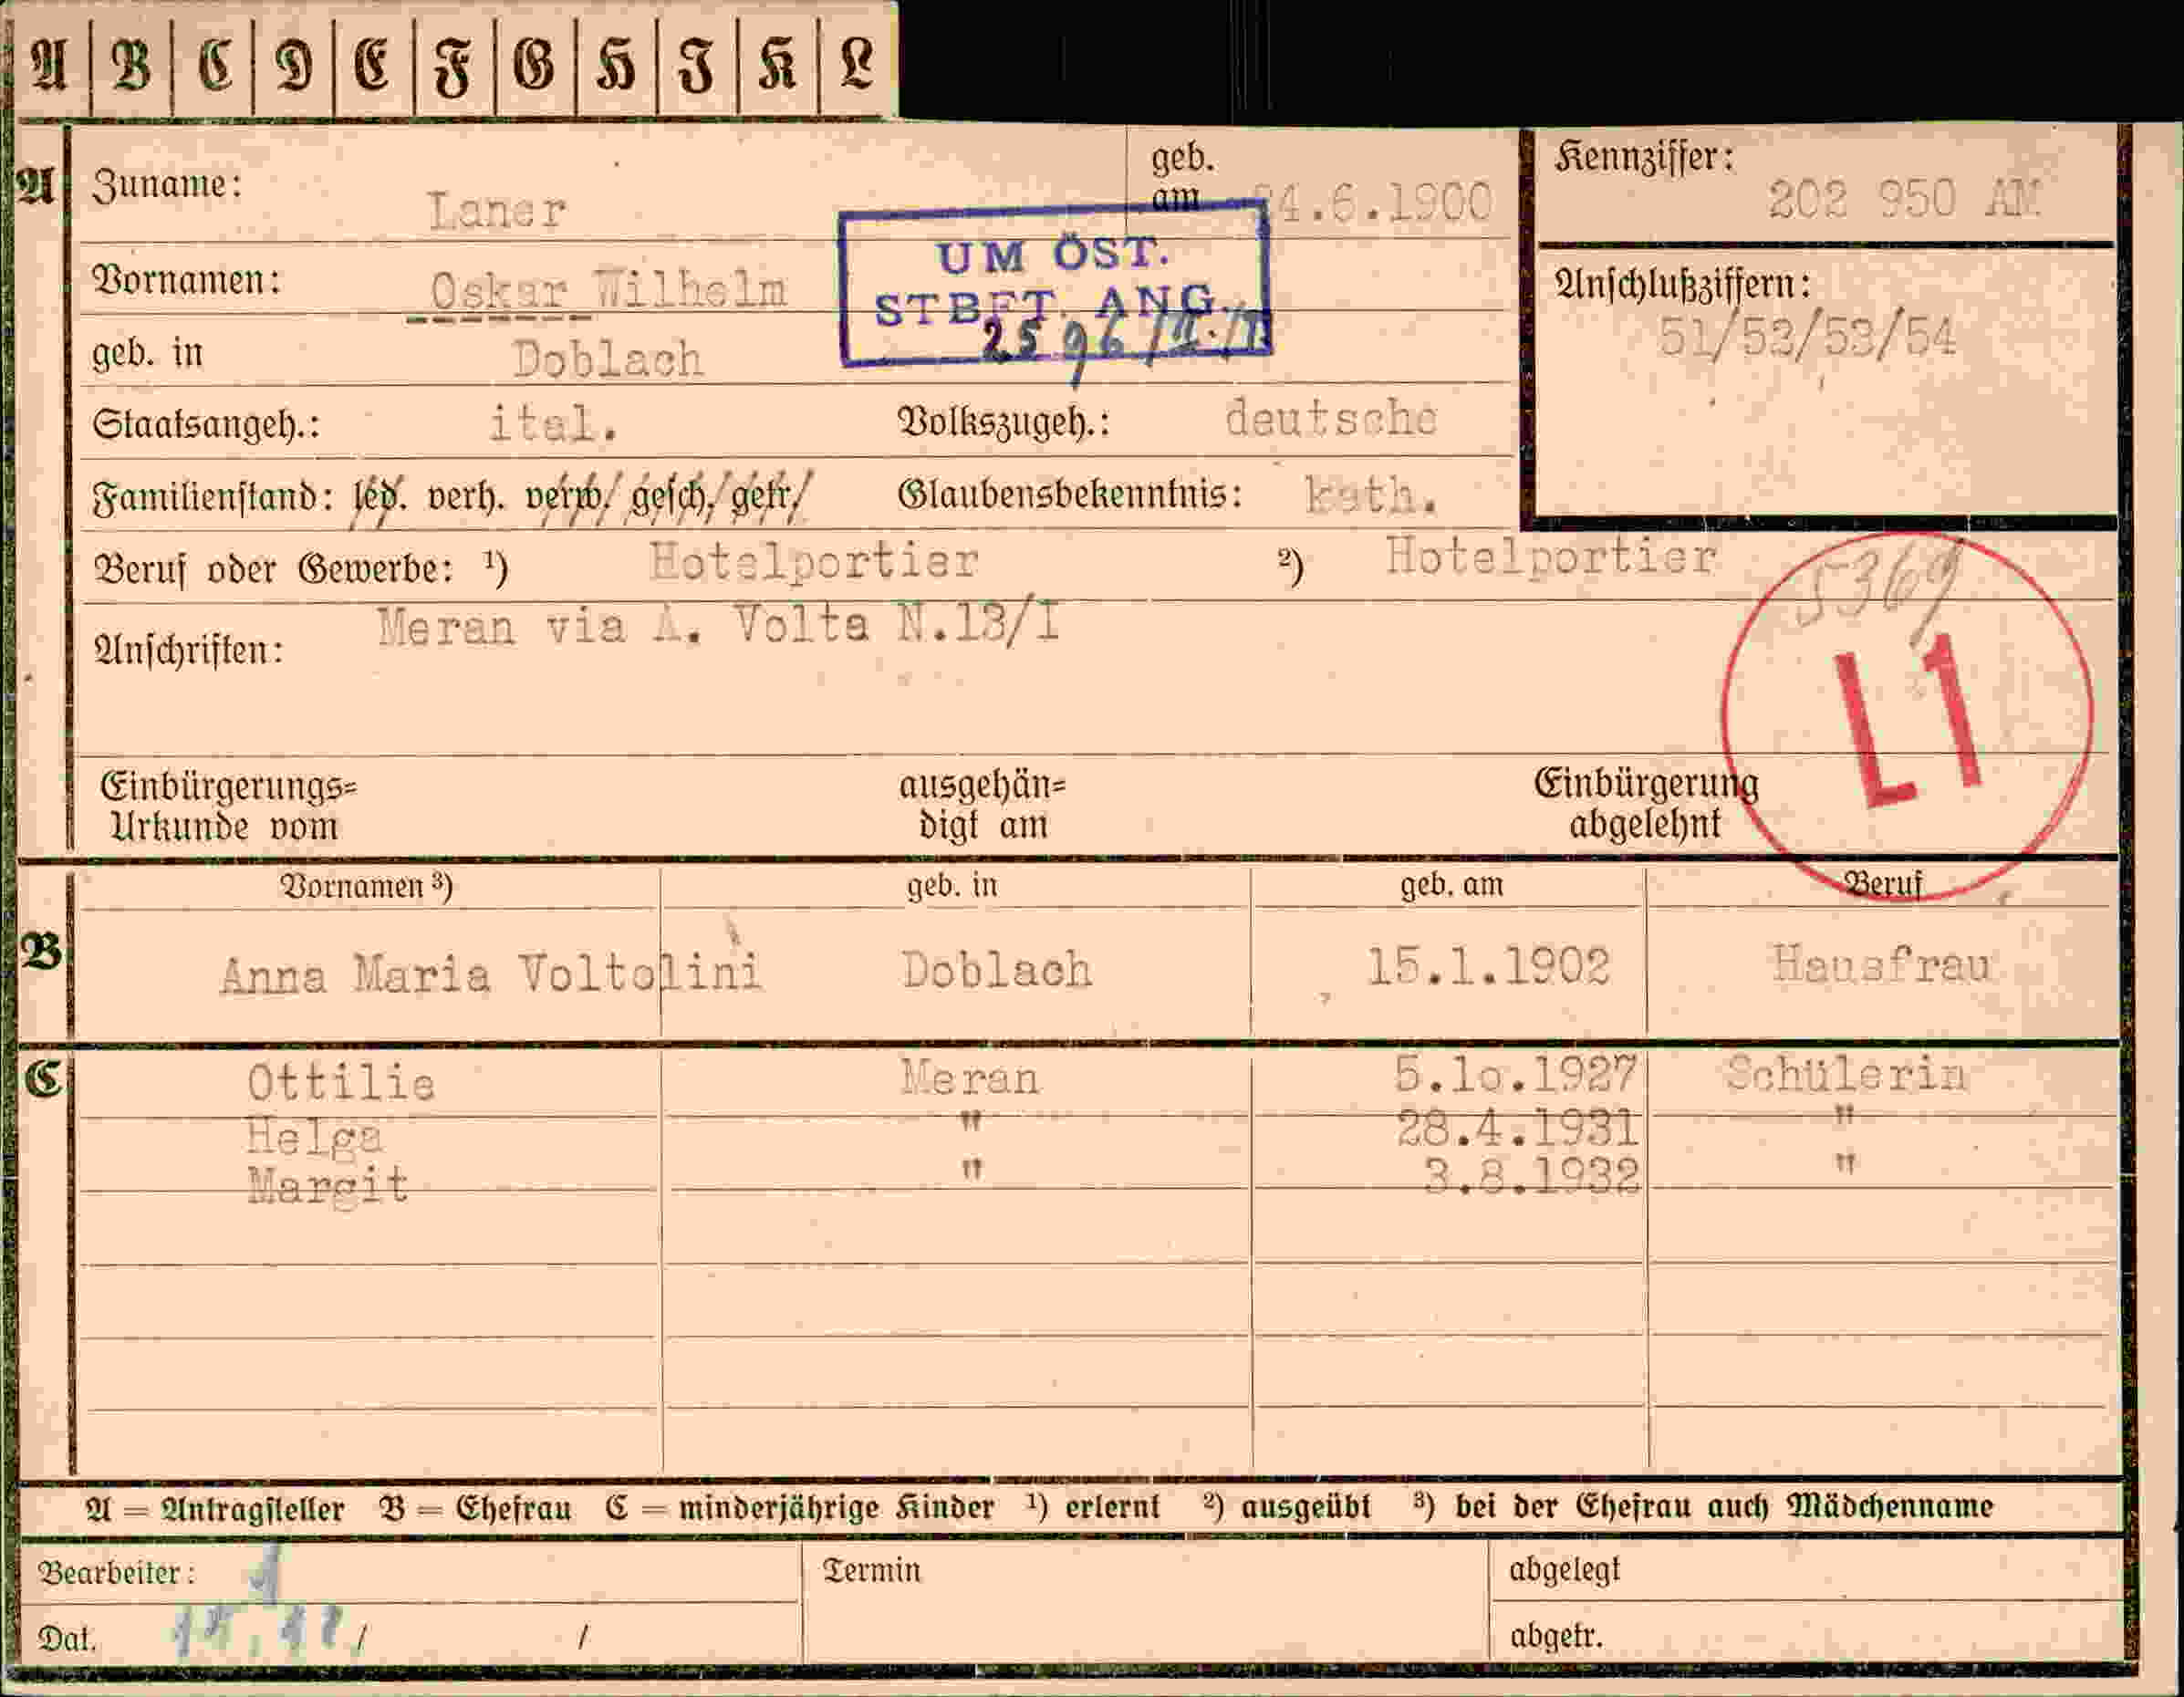 A B C D E F G H J K L
A Zuname: Laner geb. am 24.6.1900
Kennziffer: 202 950 AM
Vornamen: Oskar Wilhelm
UM ÖST.
STBFT. ANG.
2596/II./I
Anschlußziffern:
51/52/53/54
geb. in Doblach
Staatsangeh.: ital. Volkszugeh.: deutsche
Familienstand: led. verh. verw. gesch. getr. Glaubensbekenntnis: kath.
Beruf oder Gewerbe: ¹) Hotelportier ²) Hotelportier
5369
L1
Anschriften: Meran via A. Volta N.13/I
Einbürgerungs=
Urkunde vom
ausgehän=
digt am
Einbürgerung
abgelehnt
Vornamen ³) geb. in geb. am Beruf
B Anna Maria Voltolini Doblach 15.1.1902 Hausfrau
C Ottilie Meran 5.lo.1927 Schülerin
Helga " 28.4.1931 "
Margit " 3.8.1932 "
A = Antragsteller B = Ehefrau C = minderjährige Kinder ¹) erlernt ²) ausgeübt ³) bei der Ehefrau auch Mädchenname
Bearbeiter: Termin abgelegt
Dat. / / abgetr.